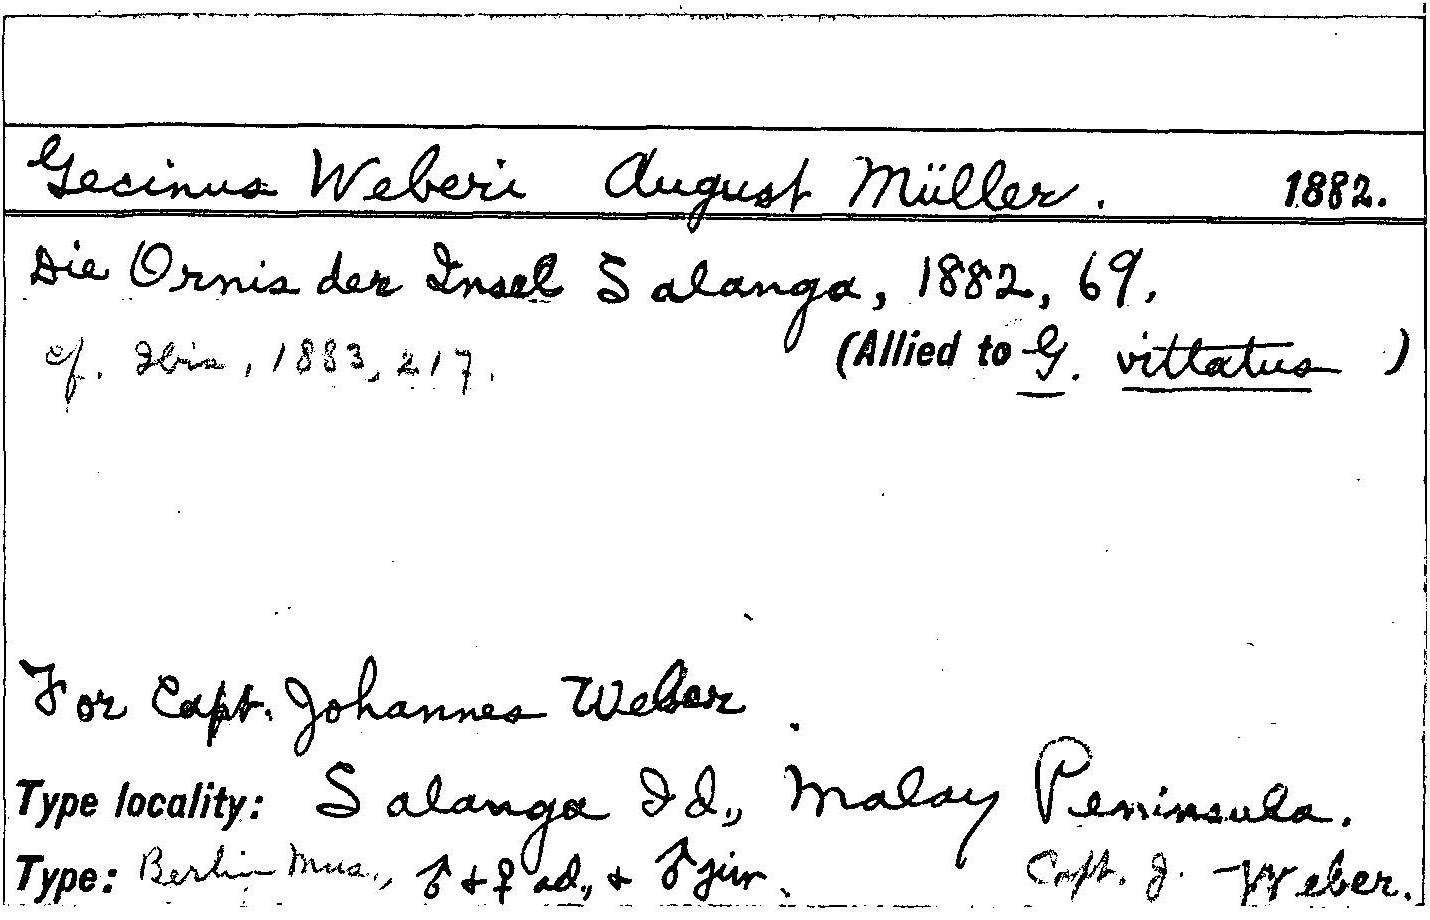 Gecinus Weberi August Müller. 1882.
Die Ornis der Insel Salanga, 1882, 69.
cf. Ibis, 1883, 217. (Allied to G. vittatus )
For Capt. Johannes Weber.
Type locality: Salanga Id., Malay Peninsula.
Type: Berlin Mus., ♂ + ♀ ad., + ♂ juv. Capt. J. Weber.